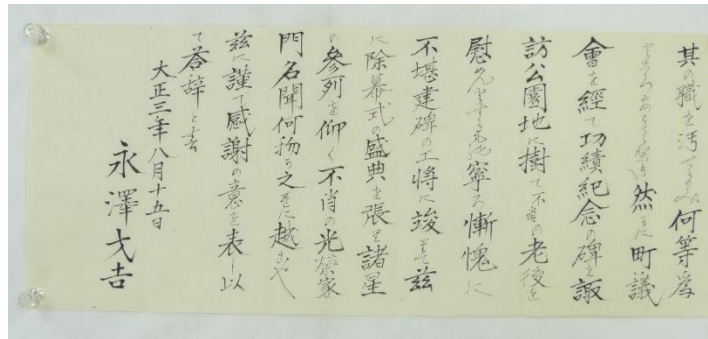 其の職を汚せるのみ何等為
然るに町議
會を經て功績紀念の碑を諏
訪公園地に樹て不肖の老後を
慰めんとす寧ろ慚愧に
不堪建碑の工将に竣へて茲
に除幕式の盛典を張り諸星
の參列を仰く不肖の光榮家
門名聞何物か之に越むや
茲に謹て感謝の意を表し以
て答辞と
大正三年八月十五日
永澤才吉